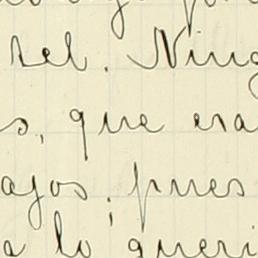 sel. Ning
s, que era
ajos, pues
a lo queri